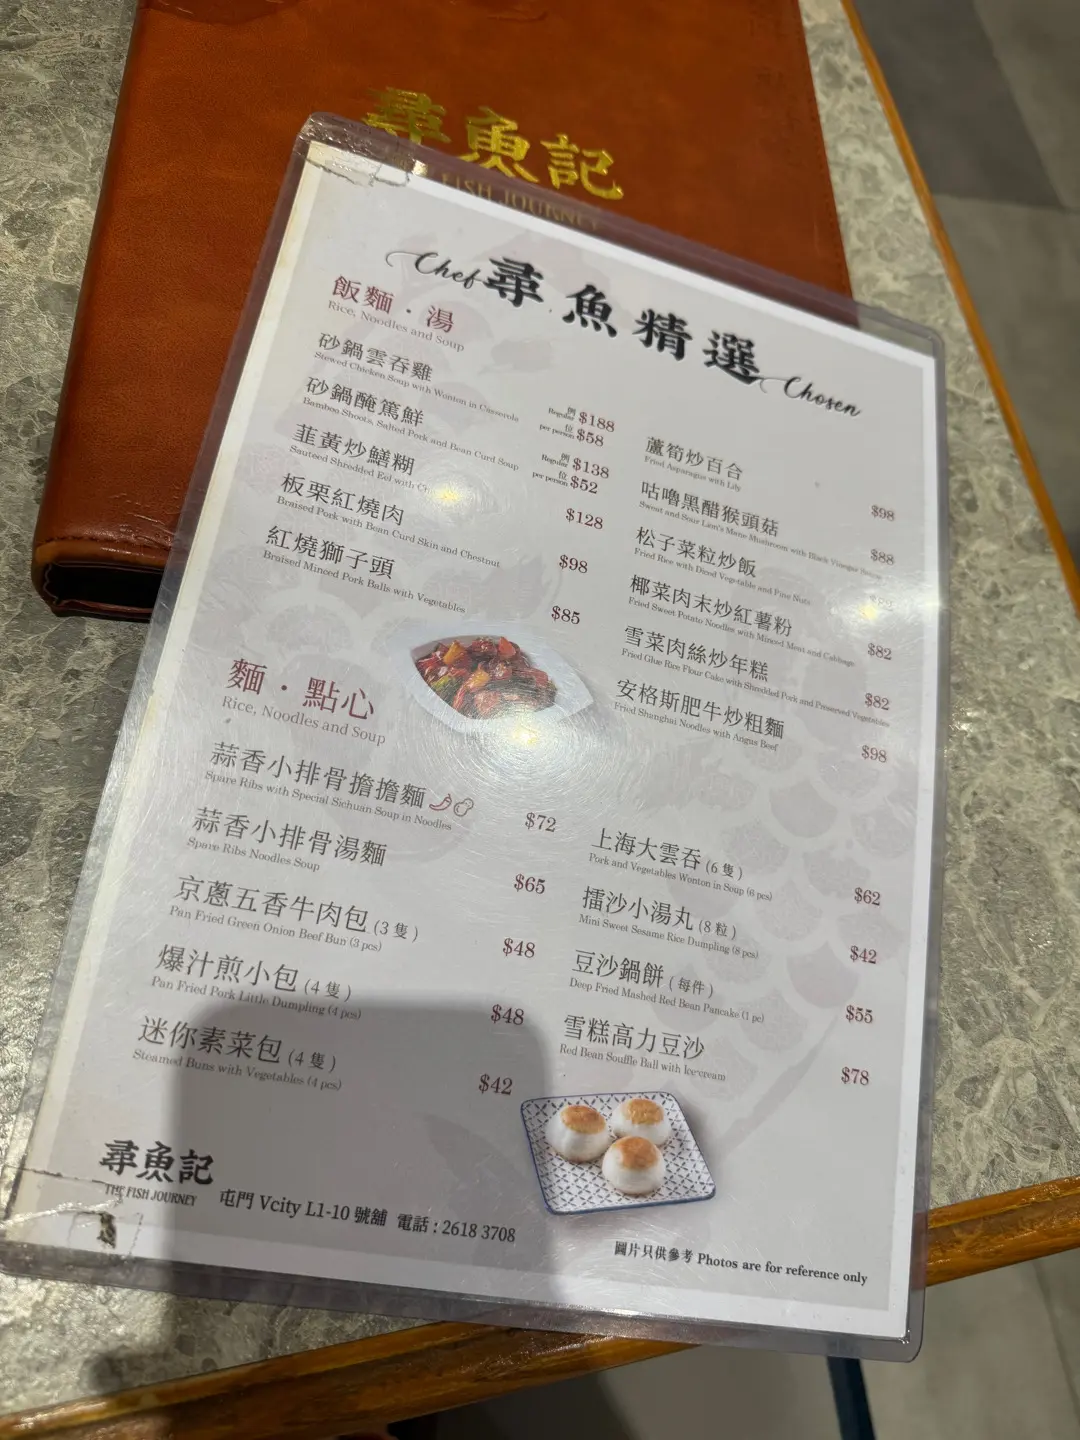 尋魚記
THE FISH JOURNEY
Chef 尋魚精選 Chosen
飯麵·湯
Rice, Noodles and Soup
砂鍋雲吞雞
Stewed Chicken Soup with Wonton in Casserole
例 Regular $188
位 per person $58
砂鍋醃篤鮮
Bamboo Shoots, Salted Pork and Bean Curd Soup
例 Regular $138
位 per person $52
韮黃炒鱔糊
Sauteed Shredded Eel with
$128
板栗紅燒肉
Braised Pork with Bean Curd Skin and Chestnut
$98
紅燒獅子頭
Braised Minced Pork Balls with Vegetables
$85
蘆筍炒百合
Fried Asparagus with Lily
$98
咕嚕黑醋猴頭菇
Sweat and Sour Lion's Mane Mushroom with Black Vinegar
$88
松子菜粒炒飯
Fried Rice with Diced Vegetable and Pine Nuts
椰菜肉末炒紅薯粉
Fried Sweet Potato Noodles with Minced Meat and Cabbage
$82
雪菜肉絲炒年糕
Fried Glue Rice Flour Cake with Shredded Pork and Preserved Vegetables
$82
安格斯肥牛炒粗麵
Fried Shanghai Noodles with Angus Beef
$98
麵·點心
Rice, Noodles and Soup
蒜香小排骨擔擔麵
Spare Ribs with Special Sichuan Soup in Noodles
$72
蒜香小排骨湯麵
Spare Ribs Noodles Soup
$65
京蔥五香牛肉包 (3 隻)
Pan Fried Green Onion Beef Bun (3 pcs)
$48
爆汁煎小包 (4 隻)
Pan Fried Pork Little Dumpling (4 pcs)
$48
迷你素菜包 (4 隻)
Steamed Buns with Vegetables (4 pcs)
$42
上海大雲吞 (6 隻)
Pork and Vegetables Wonton in Soup (6 pcs)
$62
擂沙小湯丸 (8 粒)
Mini Sweet Sesame Rice Dumpling (8 pcs)
$42
豆沙鍋餅 (每件)
Deep Fried Mashed Red Bean Pancake (1 pc)
$55
雪糕高力豆沙
Red Bean Souffle Ball with Ice-cream
$78
尋魚記
THE FISH JOURNEY
屯門 Vcity L1-10 號舖 電話 : 2618 3708
圖片只供參考 Photos are for reference only